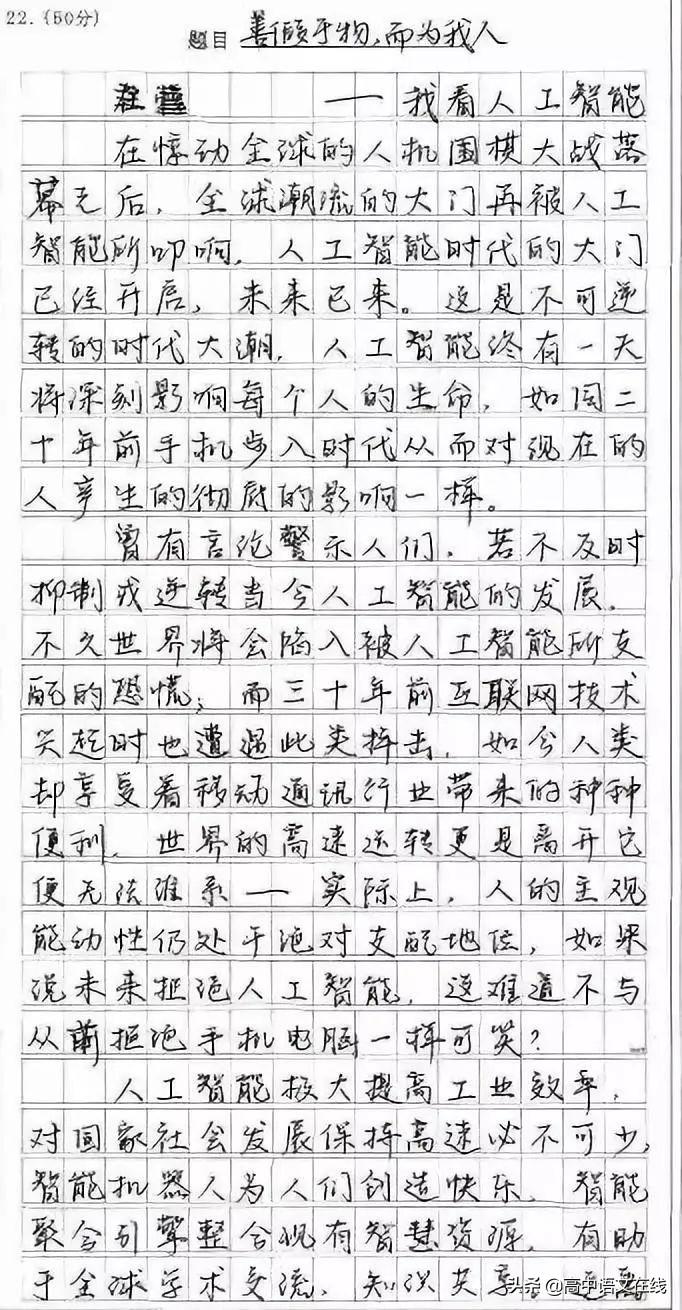 22.(50分)
题目 善假于物，而为我人
——我看人工智能
在惊动全球的人机围棋大战落
幕之后，全球潮流的大门再被人工
智能所叩响，人工智能时代的大门
已经开启，未来已来。这是不可逆
转的时代大潮，人工智能终有一天
将深刻影响每个人的生命，如同二
十年前手机步入时代从而对现在的
人产生的彻底的影响一样。
曾有言论警示人们，若不及时
抑制或逆转当今人工智能的发展，
不久世界将会陷入被人工智能所支
配的恐慌；而三十年前互联网技术
兴起时也遭遇此类抨击，如今人类
却享受着移动通讯行业带来的种种
便利，世界的高速运转更是离开它
便无法维系——实际上，人的主观
能动性仍处于绝对支配地位，如果
说未来拒绝人工智能，这难道不与
从前拒绝手机电脑一样可笑？
人工智能极大提高工业效率，
对国家社会发展保持高速必不可少，
智能机器人为人们创造快乐，智能
聚合引擎整合现有智慧资源，有助
于全球学术交流、知识共享。
头条@高中语文在线